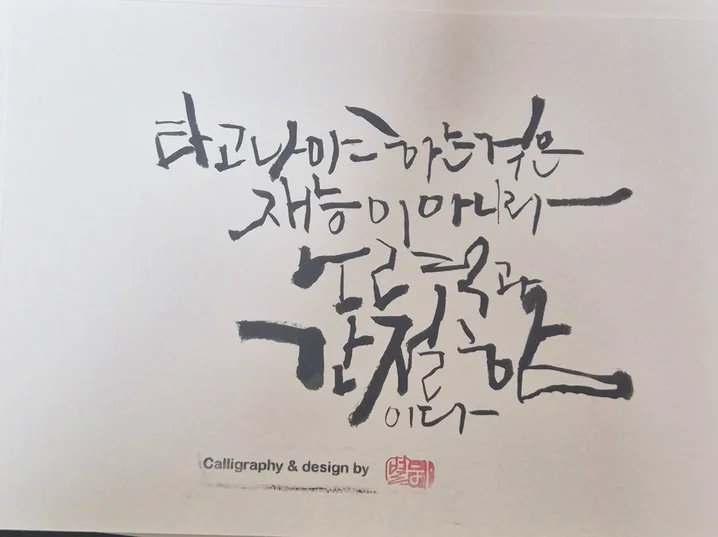 타고나야 하는 것은
재능이 아니라
노력과
간절함
이다
Calligraphy & design by